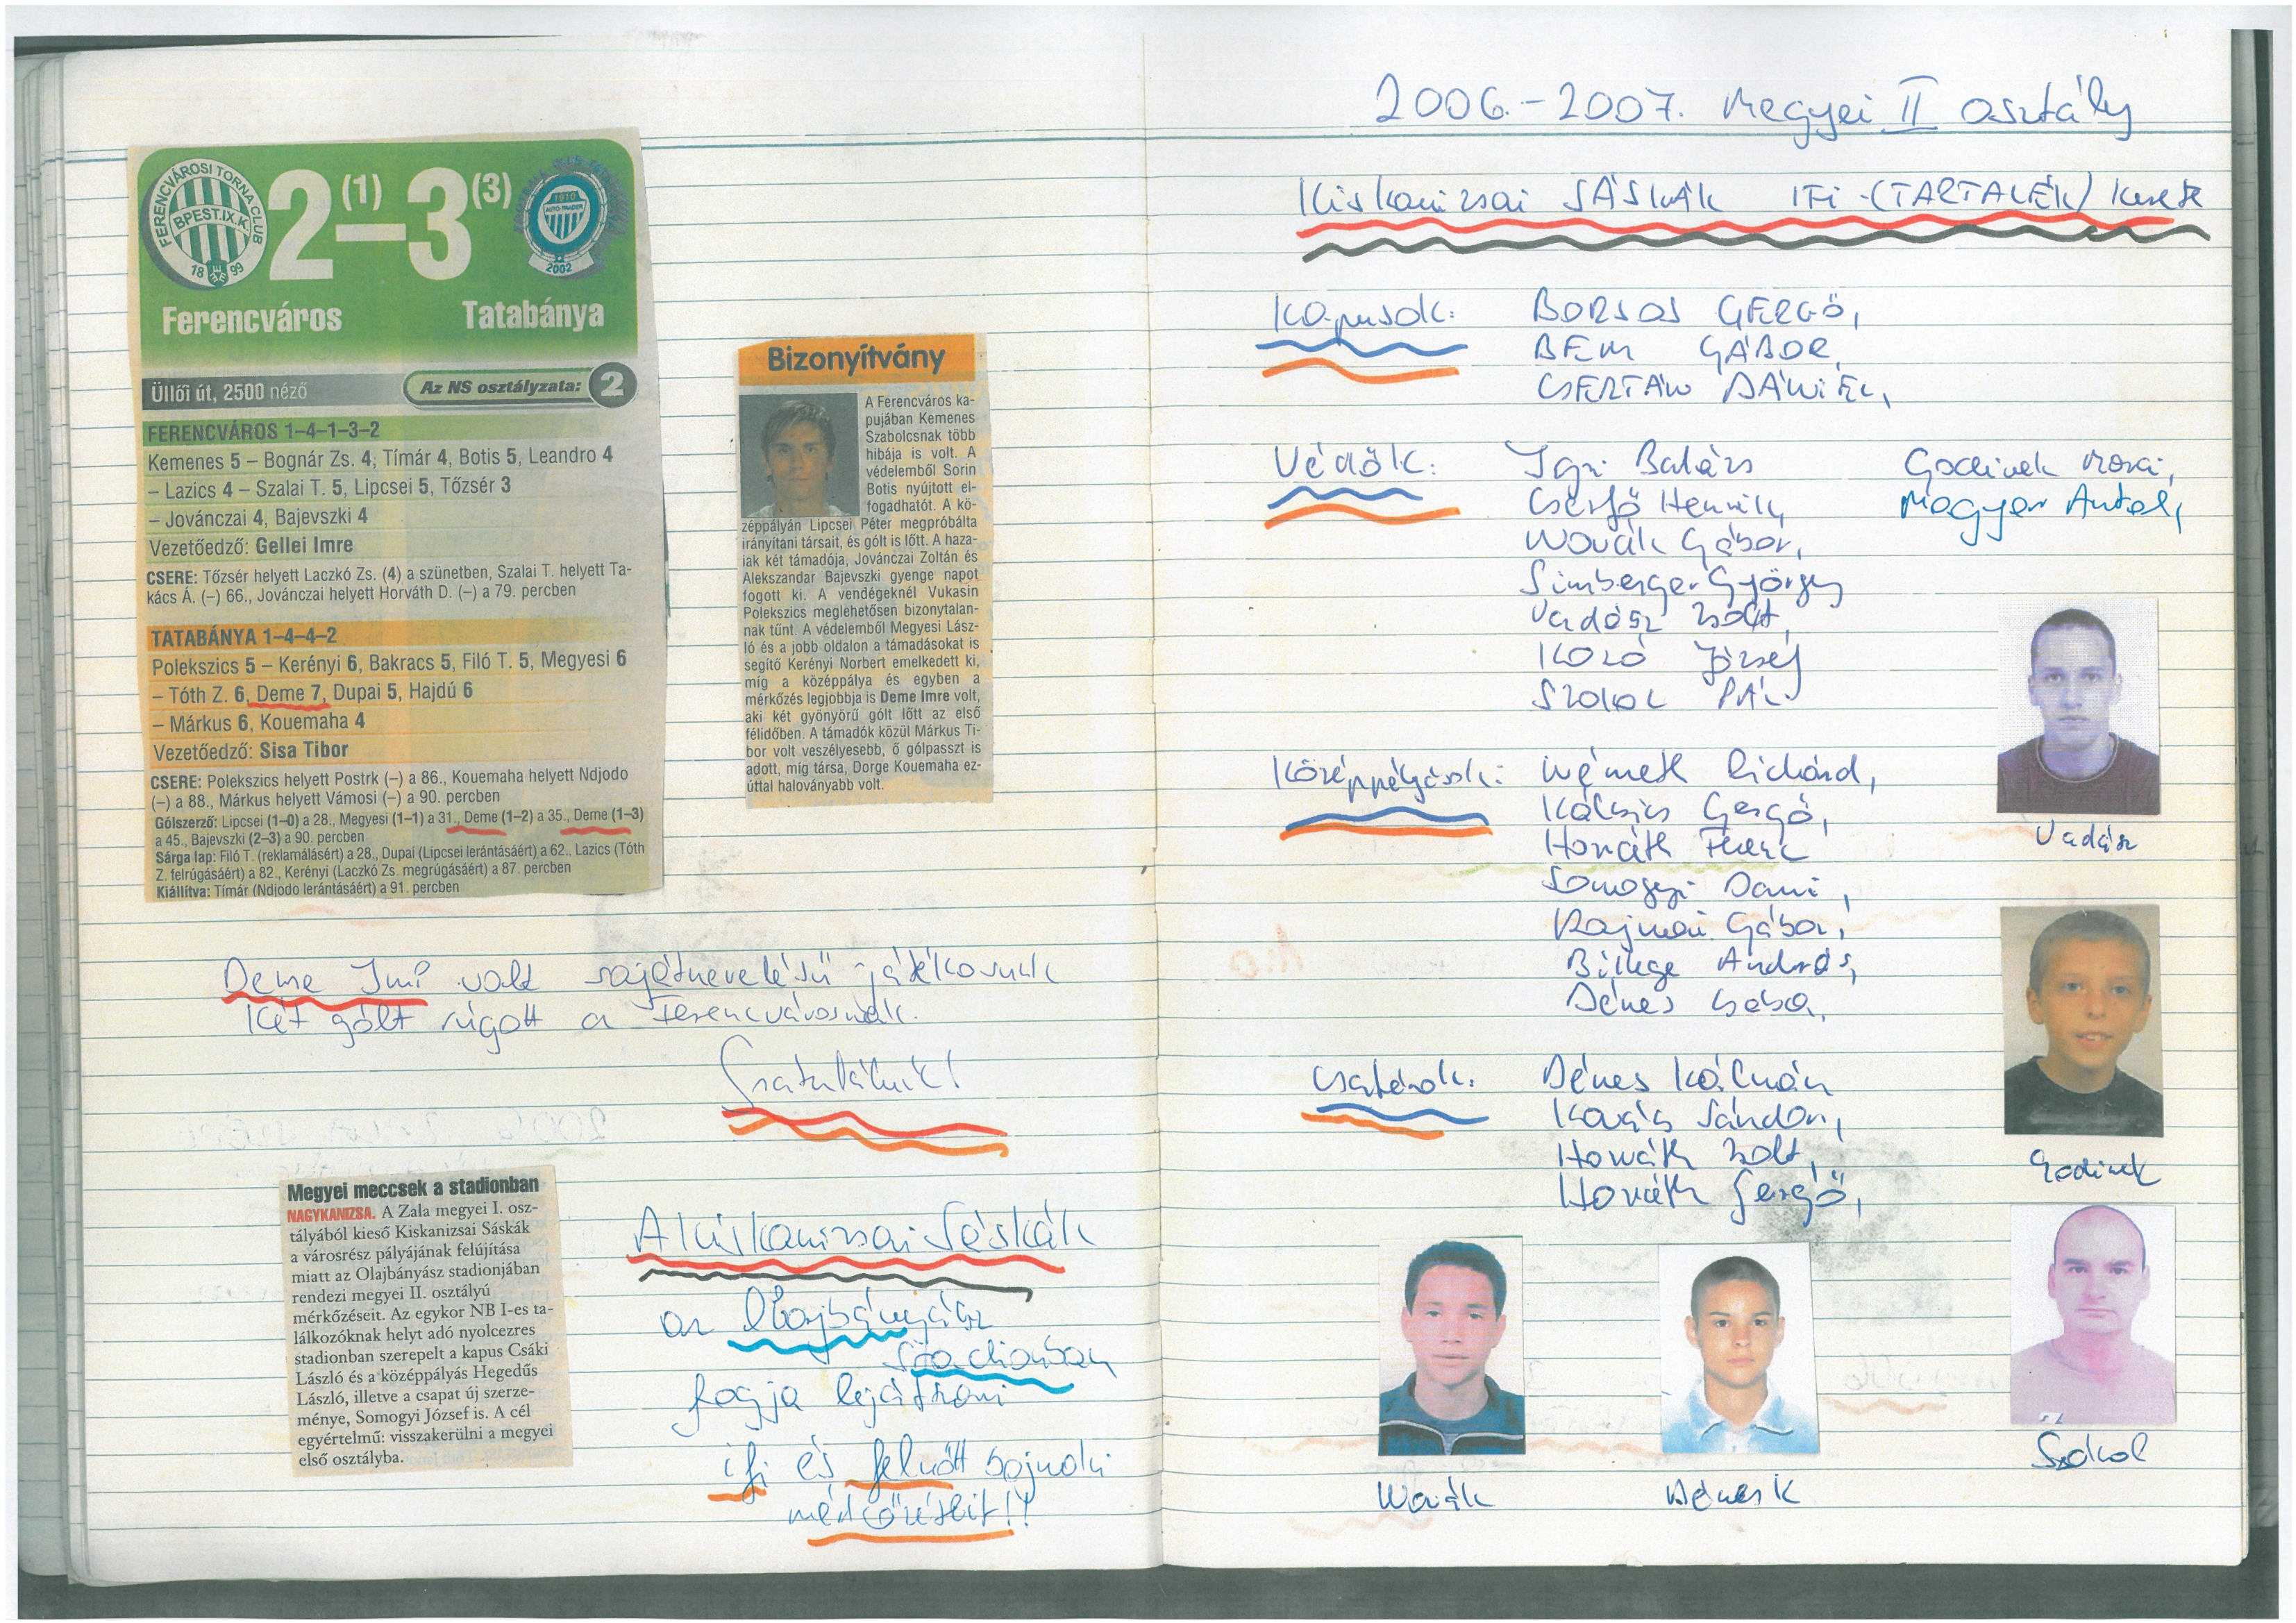 FERENCVÁROSI TORNA CLUB
BPEST.IX.K.
18 99
2 (1) – 3 (3)
1910
2002
Ferencváros Tatabánya
Üllői út, 2500 néző Az NS osztályzata: 2
FERENCVÁROS 1–4–1–3–2
Kemenes 5 – Bognár Zs. 4, Tímár 4, Botis 5, Leandro 4
– Lazics 4 – Szalai T. 5, Lipcsei 5, Tőzsér 3
– Jovánczai 4, Bajevszki 4
Vezetőedző: Gellei Imre
CSERE: Tőzsér helyett Laczkó Zs. (4) a szünetben, Szalai T. helyett Ta-
kács Á. (–) 66., Jovánczai helyett Horváth D. (–) a 79. percben
TATABÁNYA 1–4–4–2
Polekszics 5 – Kerényi 6, Bakracs 5, Filó T. 5, Megyesi 6
– Tóth Z. 6, Deme 7, Dupai 5, Hajdú 6
– Márkus 6, Kouemaha 4
Vezetőedző: Sisa Tibor
CSERE: Polekszics helyett Postrk (–) a 86., Kouemaha helyett Ndjodo
(–) a 88., Márkus helyett Vámosi (–) a 90. percben
Gólszerző: Lipcsei (1–0) a 28., Megyesi (1–1) a 31., Deme (1–2) a 35., Deme (1–3)
a 45., Bajevszki (2–3) a 90. percben
Sárga lap: Filó T. (reklamálásért) a 28., Dupai (Lipcsei lerántásáért) a 62., Lazics (Tóth
Z. felrúgásáért) a 82., Kerényi (Laczkó Zs. megrúgásáért) a 87. percben
Kiállítva: Tímár (Ndjodo lerántásáért) a 91. percben
Bizonyítvány
A Ferencváros ka-
pujában Kemenes
Szabolcsnak több
hibája is volt. A
védelemből Sorin
Botis nyújtott el-
fogadhatót. A kö-
zéppályán Lipcsei Péter megpróbálta
irányítani társait, és gólt is lőtt. A haza-
iak két támadója, Jovánczai Zoltán és
Alekszandar Bajevszki gyenge napot
fogott ki. A vendégeknél Vukasin
Polekszics meglehetősen bizonytalan-
nak tűnt. A védelemből Megyesi Lász-
ló és a jobb oldalon a támadásokat is
segítő Kerényi Norbert emelkedett ki,
míg a középpálya és egyben a
mérkőzés legjobbja is Deme Imre volt,
aki két gyönyörű gólt lőtt az első
félidőben. A támadók közül Márkus Ti-
bor volt veszélyesebb, ő gólpasszt is
adott, míg társa, Dorge Kouemaha ez-
úttal halványabb volt.
Deme Imi volt sajátnevelésű játékosunk
Két gólt rúgott a Ferencvárosnak.
Gratulálunk!
Megyei meccsek a stadionban
NAGYKANIZSA. A Zala megyei I. osz-
tályából kieső Kiskanizsai Sáskák
a városrész pályájának felújítása
miatt az Olajbányász stadionjában
rendezi megyei II. osztályú
mérkőzéseit. Az egykor NB I-es ta-
lálkozóknak helyt adó nyolcezres
stadionban szerepelt a kapus Csáki
László és a középpályás Hegedűs
László, illetve a csapat új szerze-
ménye, Somogyi József is. A cél
egyértelmű: visszakerülni a megyei
első osztályba.
A kiskanizsai Sáskák
az Olajbányász
Stadionban
fogja lejátszani
ifi és felnőtt bajnoki
mérkőzéseit!!
2006.-2007. Megyei II osztály
Kiskanizsai SÁSKÁK IFI-(TARTALÉK) Kerete
Kapusok: BORSOS GERGŐ,
BEM GÁBOR,
CSERTÁN DÁNIEL,
Védők: Igri Balázs Godinek Marci,
Cserfő Henrik, Magyar Antal,
Novák Gábor,
Simberger György
Vadász Zsolt,
KOZÓ József
SZOKOL PÁL
Középpályások: Németh Richárd,
Kálcsics Gergő,
Horváth Ferenc
Somogyi Dani,
Rajnai Gábor,
Billege András,
Dénes Csaba,
Csatárok: Dénes Kálmán
Kovács Sándor,
Horváth Zsolt,
Horváth Gergő,
Vadász
Godinek
Szokol
Novák
Dénes K